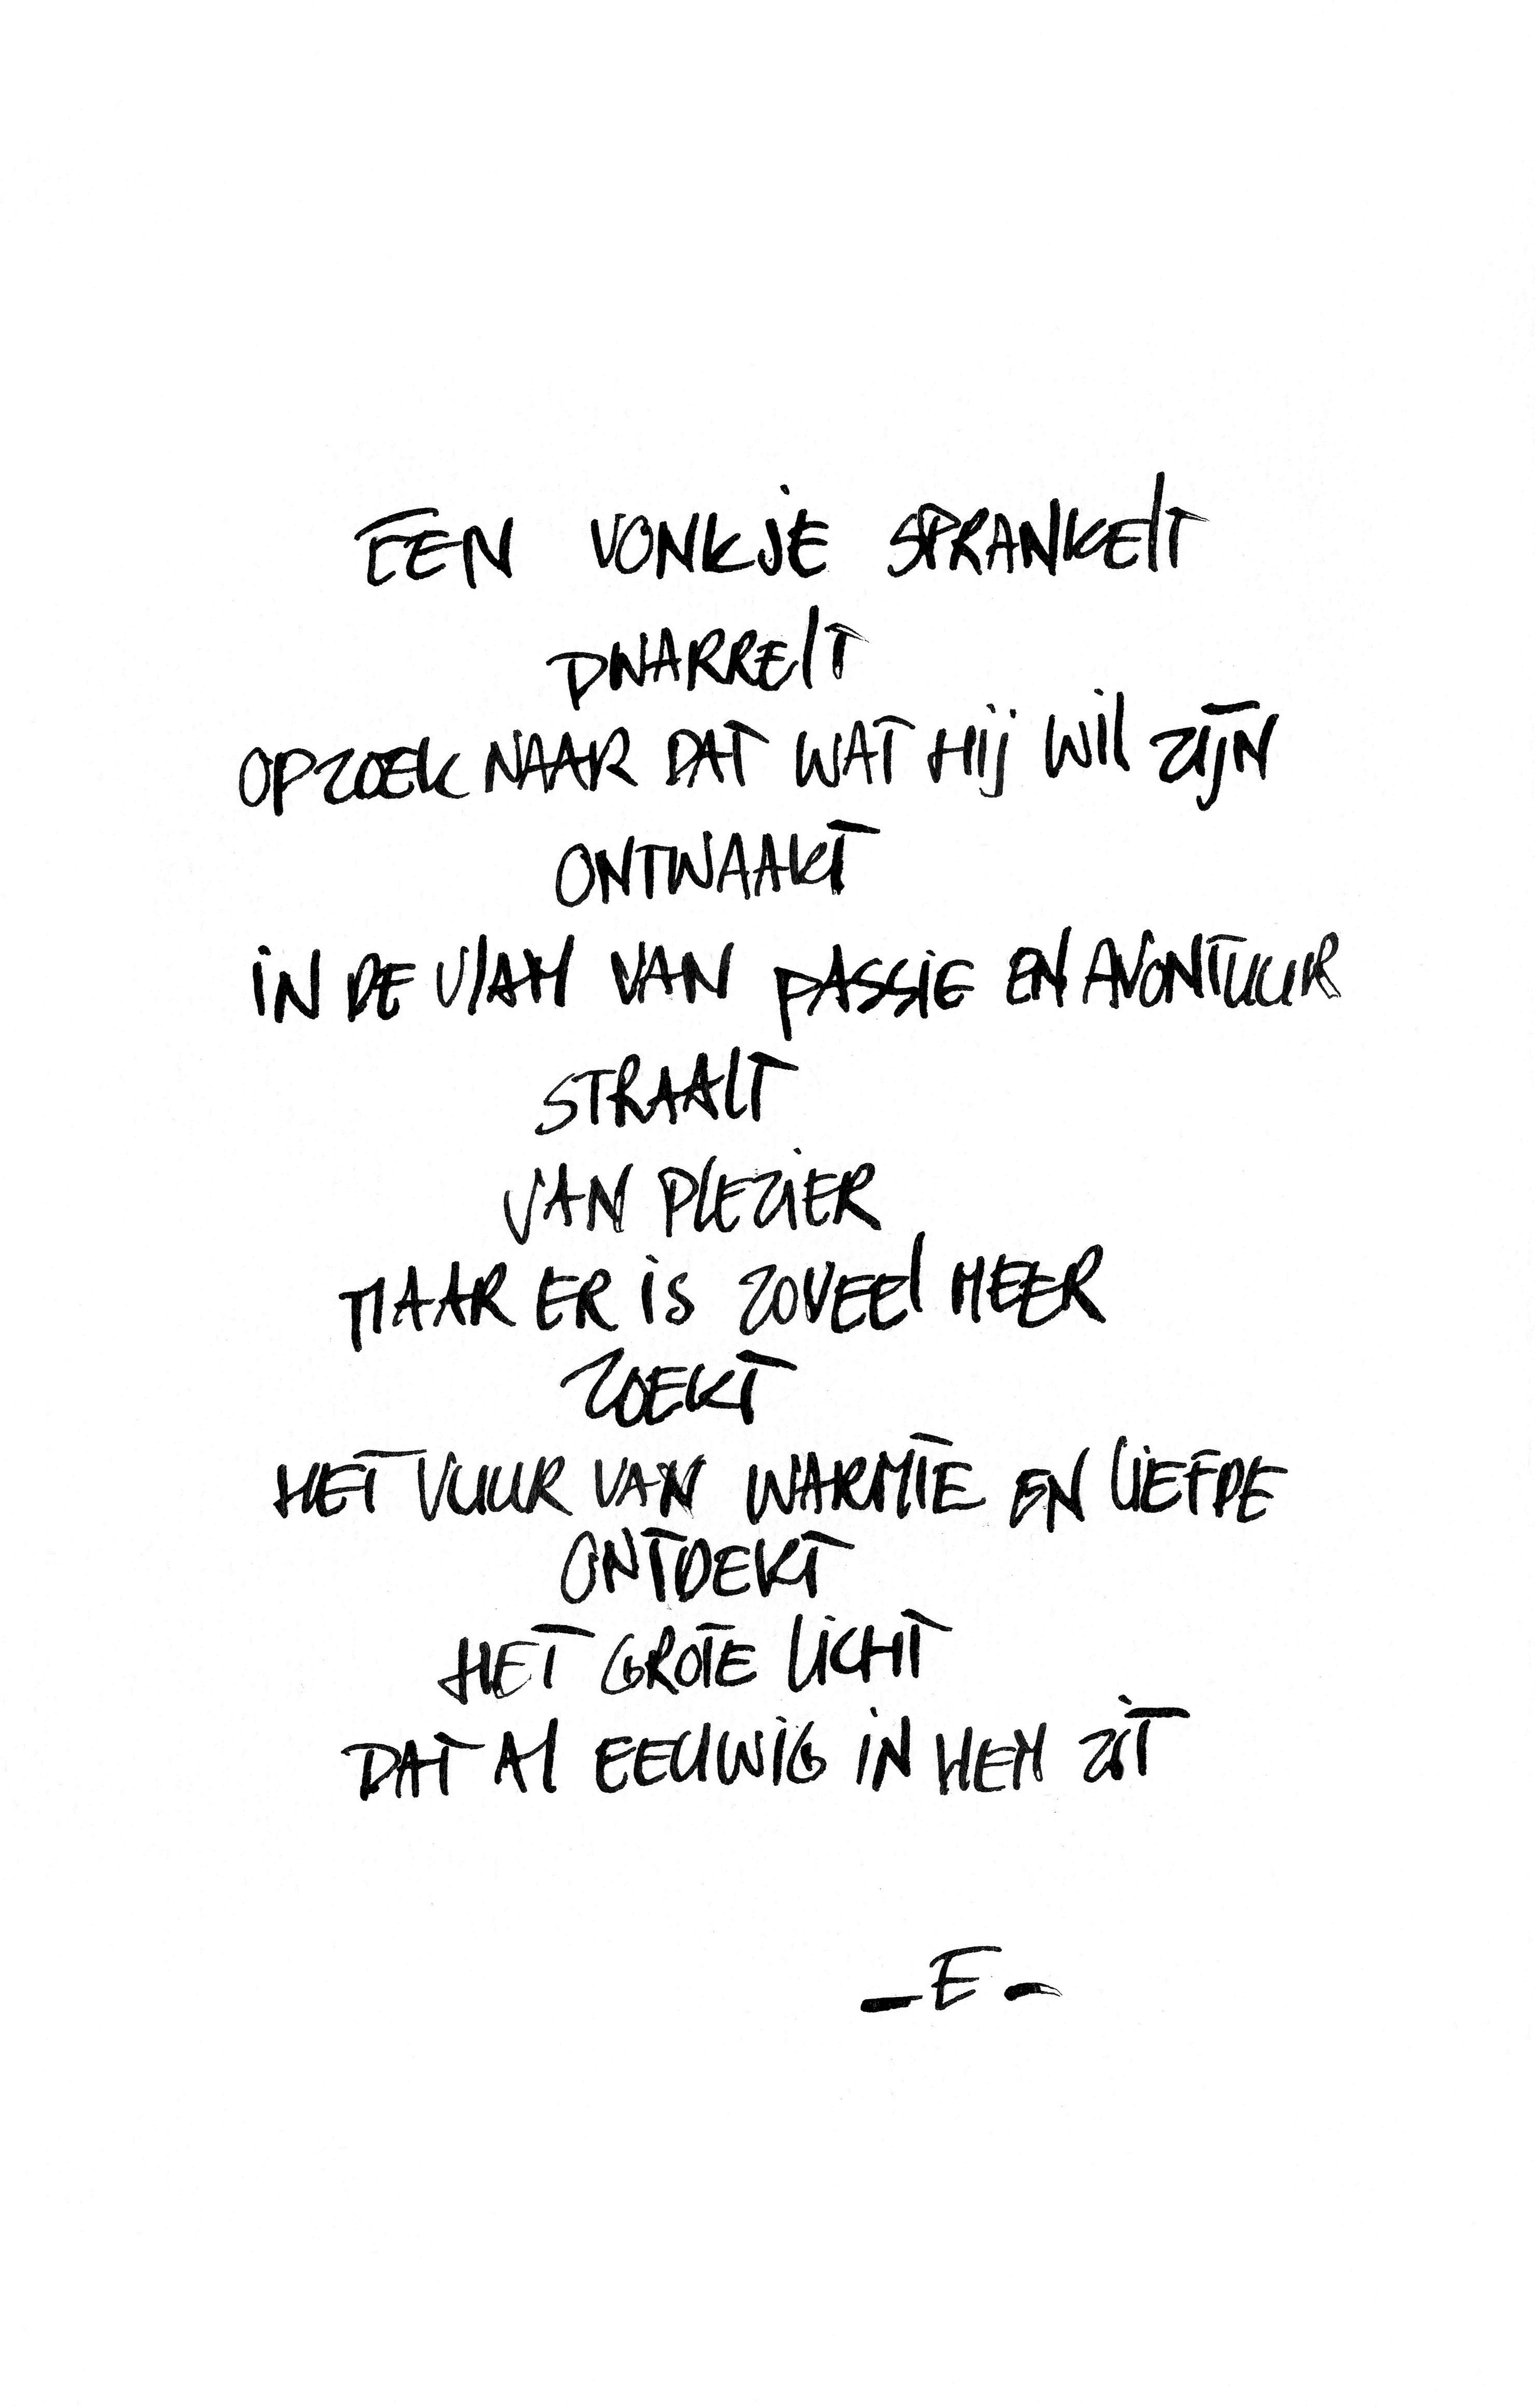 EEN VONKJE SPRANKELT
DWARRELT
OPZOEK NAAR DAT WAT HIJ WIL ZIJN
ONTWAAKT
IN DE VLAM VAN PASSIE EN AVONTUUR
STRAALT
VAN PLEZIER
MAAR ER IS ZOVEEL MEER
ZOEKT
HET VUUR VAN WARMTE EN LIEFDE
ONTDEKT
HET GROTE LICHT
DAT AL EEUWIG IN HEM ZIT
- E -